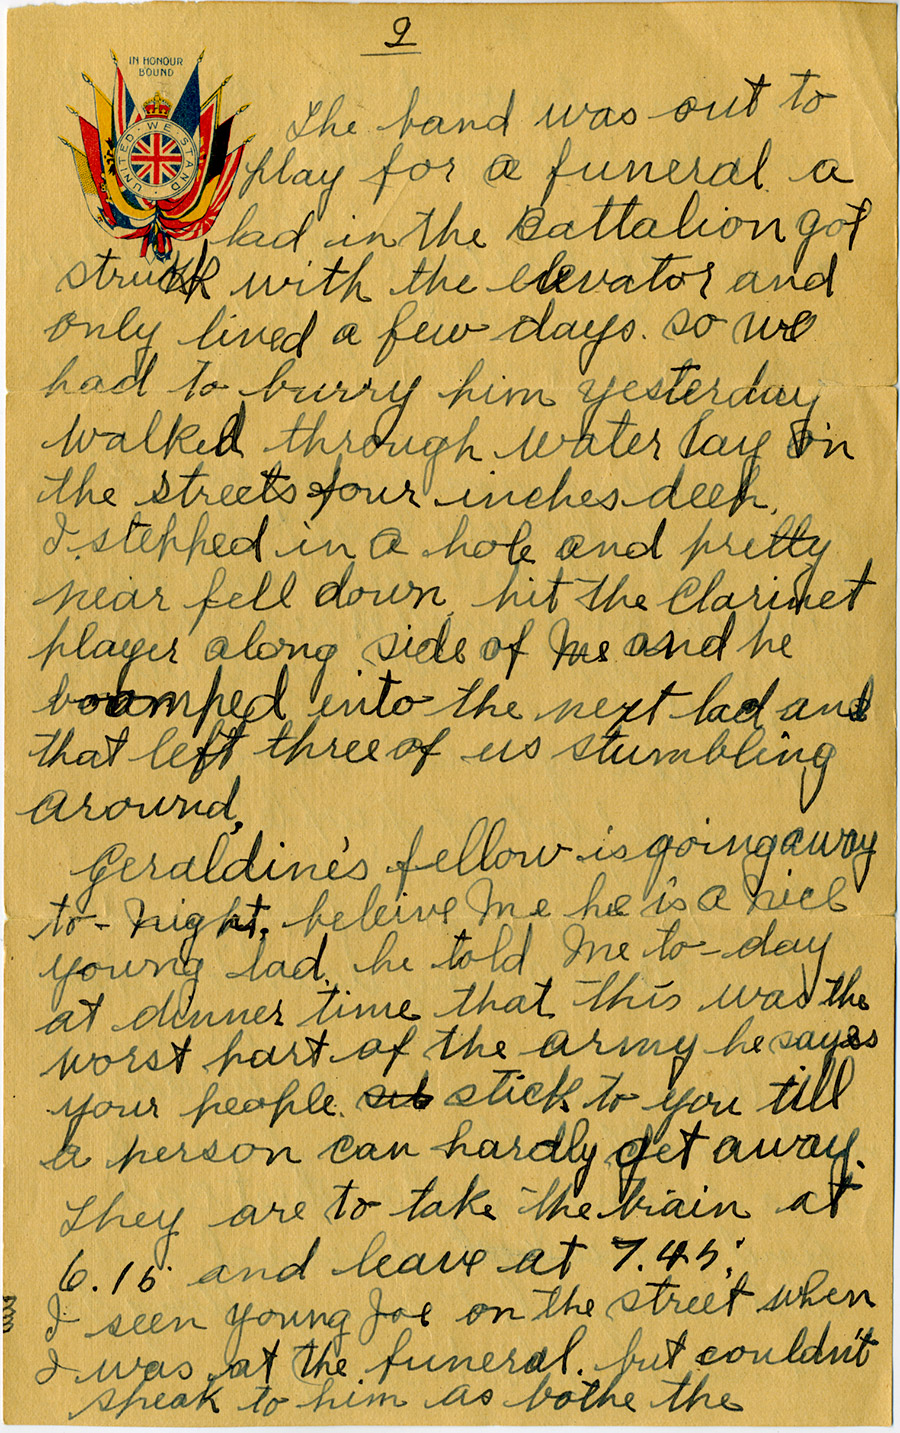 2
IN HONOUR
BOUND
UNITED · WE · STAND
The band was out to
play for a funeral a
lad in the Battalion got
struck with the elevator and
only lived a few days. so we
had to burry him yesterday
walked through water lay on
the streets four inches deep.
I stepped in a hole and pretty
near fell down hit the Clarinet
player along side of Me and he
bumped into the next lad and
that left three of us stumbling
around,
Geraldine's fellow is going away
to-night. beleive Me he is a nice
young lad. he told Me to-day
at dinner time that this was the
worst part of the army he says
your people stick to you till
a person can hardly get away.
They are to take the train at
6.15 and leave at 7.45.
I seen young Joe on the street when
I was at the funeral. but couldn't
speak to him as bothe the